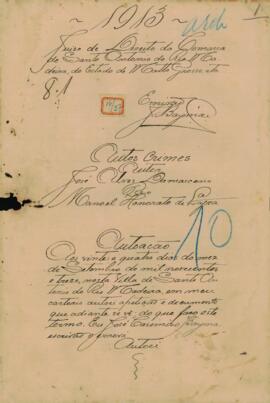 1913
Juizo de Direito da Comarca
de Santo Antonio do Rio Ma-
deira, do Estado de Matto Grosso
8.1
Escrivão
Autos Crimes
Autor
José Alves
Réo
Manoel Honorato de
10
Autoação
Aos vinte e quatro dias do mez
de Setembro de mil novecentos
e treze, nesta Villa de Santo An-
tonio do Rio Madeira, em meu
cartorio autoei a petição e documento
que adiante se vê: do que faço este
termo. Eu José
escrivão o escrevi.
Autoei